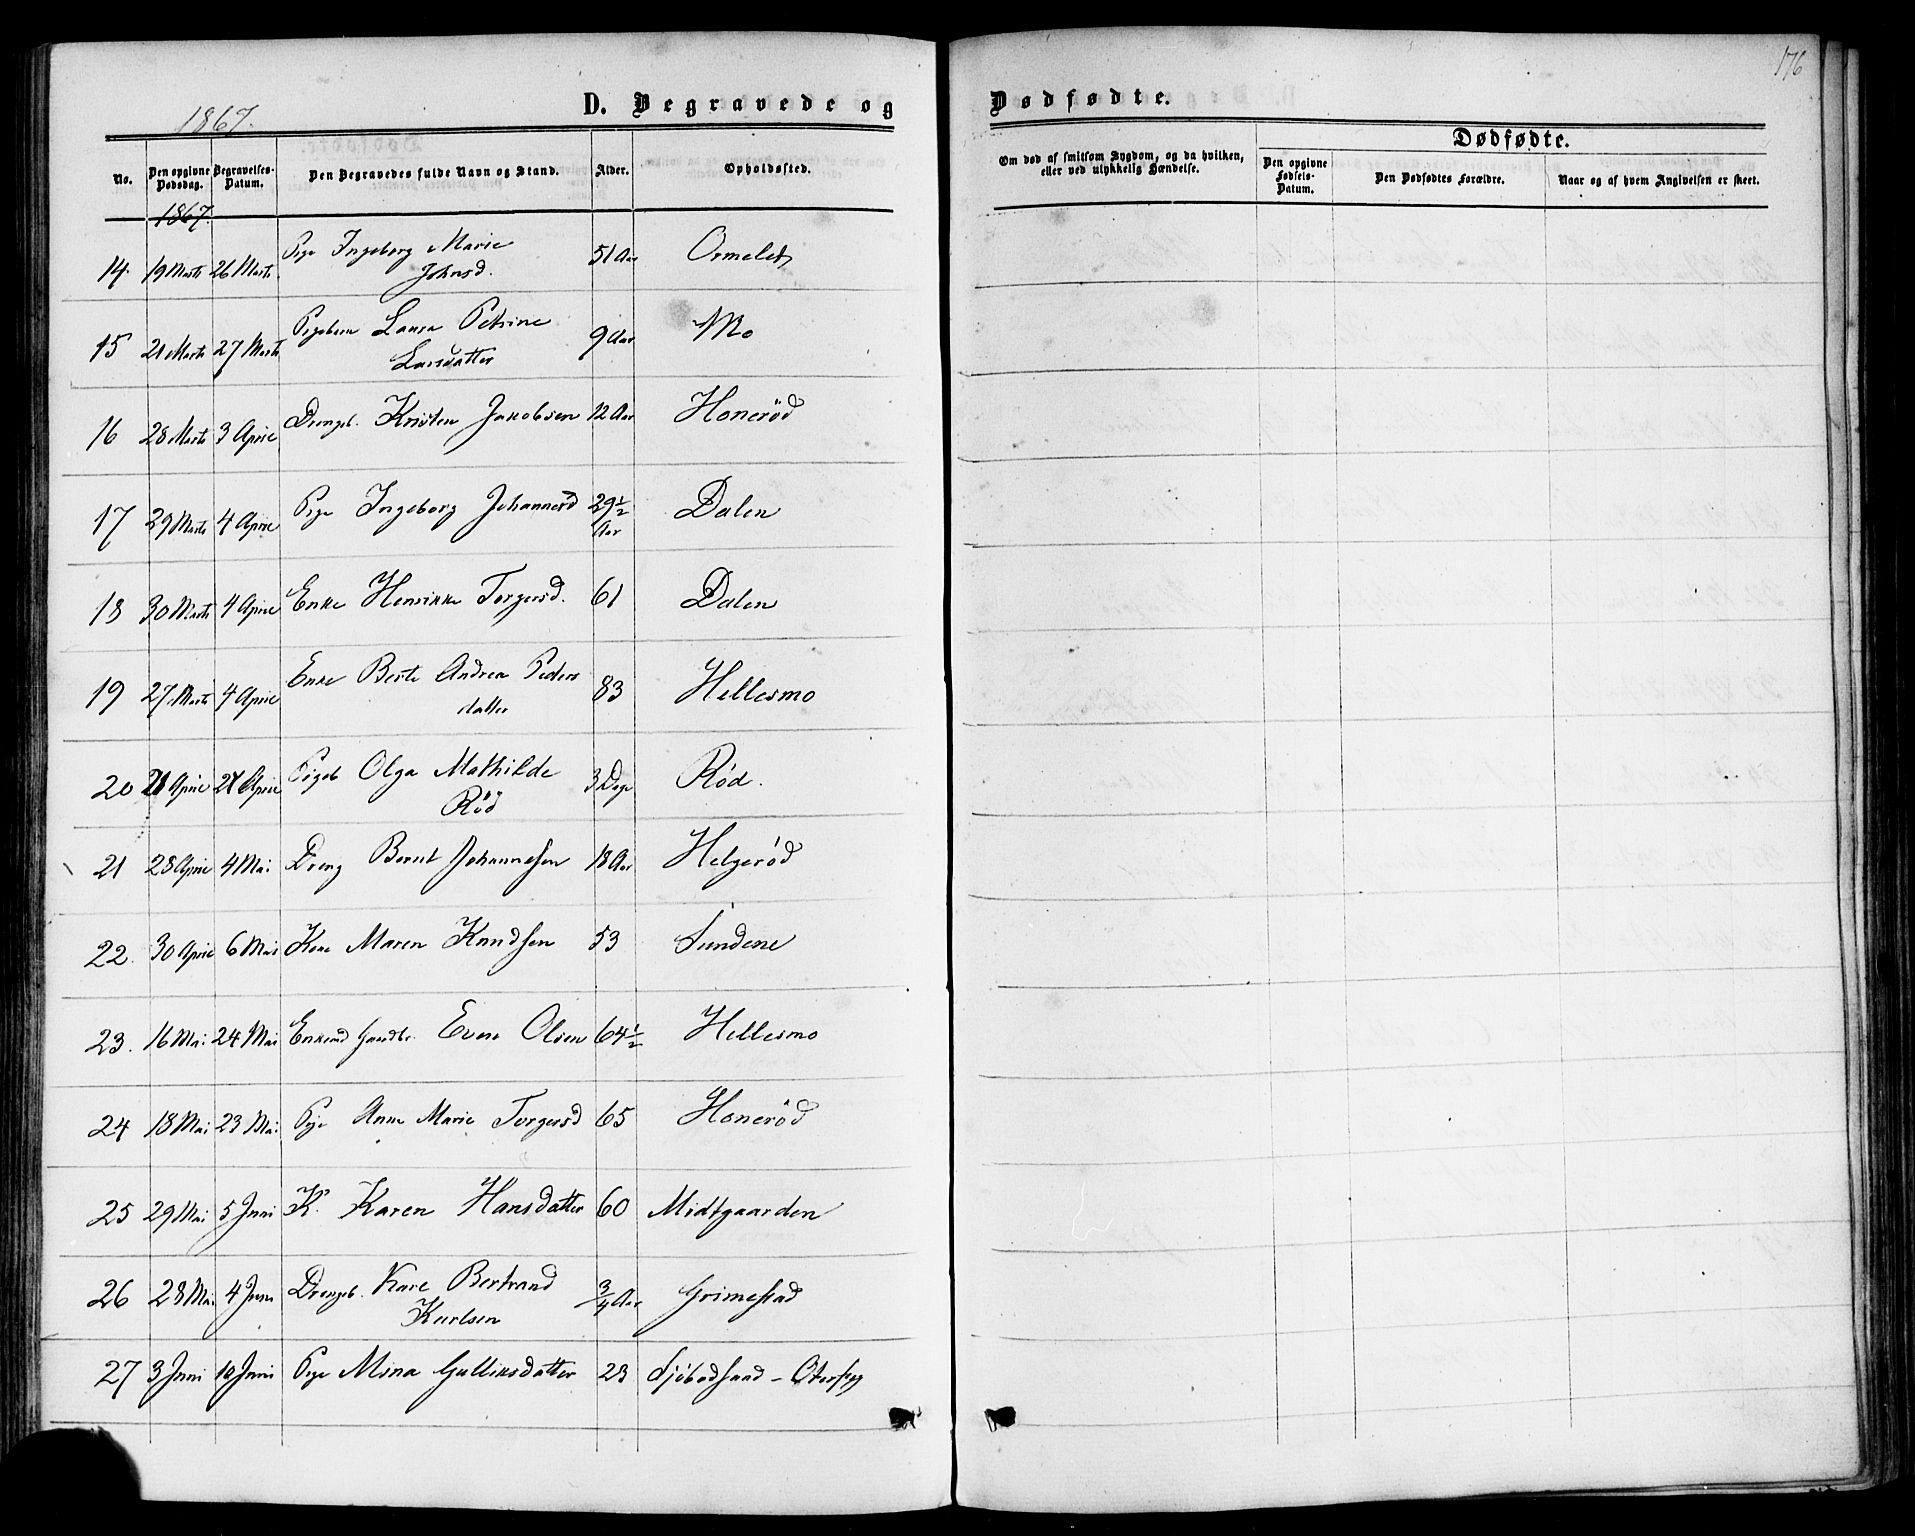 176
1867.
D. Begravede og
Dødfødte.
No.
Den opgivne Dødsdag.
Begravelses-Datum.
Den Begravedes fulde Navn og Stand.
Alder.
Opholdssted.
Om død af smitsom Sygdom, og da hvilken, eller ved ulykkelig Hændelse.
Dødfødte.
Den opgivne Fødsels-Datum.
Den Dødfødtes Forældre.
Naar og af hvem Angivelsen er skeet.
1867.
14. 19 Marts 26 Marts Pige Ingeborg Marie 51 Aar Ormelet
Johnsd.
15 21 Marts 27 Marts Pigebarn Laura Petrine 9 Aar Mo
Larsdatter
16 28 Marts 3 April Drengeb. Kristen Jakobsen 12 Aar Honeröd
17 29 Marts 4 April Pige Ingeborg Johannesd 29½ Aar Dalen
18 30 Marts 4 April Enke Henrikke Torgersd. 61 Dalen
19 27 Marts 4 April Enke Berte Andrea Peders 83 Hellesmo
datter
20 21 April April Pigeb Olga Mathilde 3 Dage Rød.
Röd
21 28 April 4 Mai Dreng Bernt Johannesen 18 Aar Helgeröd
22. 30 April 6 Mai Kone Maren Knudsen 53 Sundene
23. 16 Mai 24 Mai Enkemd Gaardbr. Even Olsen 64½ Hellesmo
24 18 Mai 23 Mai Pige Anne Marie Torgersd 65 Honeröd
25 29 Mai 5 Juni K. Karen Hansdatter 60 Midtgaarden
26 28 Mai 4 Juni Drengeb. Karl Bertrand ¾ Aar Grimestad
Karlsen
27 3 Juni 10 Juni Pige Mina Gulliksdatter 23